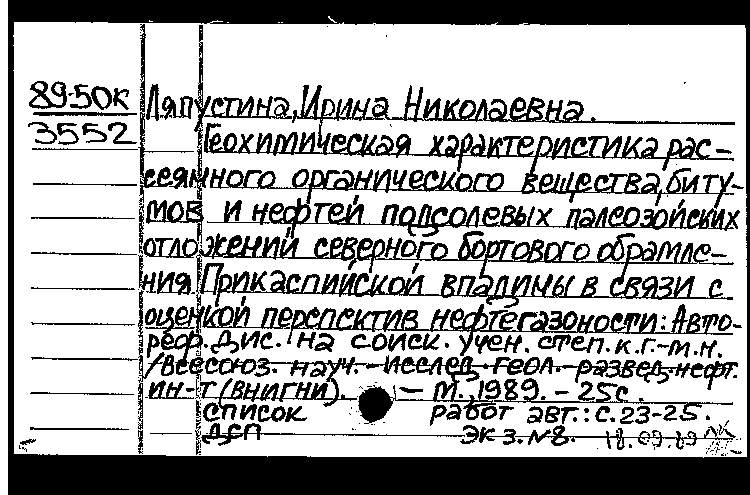 89-50к Ляпустина, Ирина Николаевна.
3552 Геохимическая характеристика рас-
сеянного органического вещества, биту-
мов и нефтей подсолевых палеозойских
отложений северного бортового обрамле-
ния Прикаспийской впадины в связи с
оценкой перспектив нефтегазоности: Авто-
реф. дис. на соиск. учен. степ. к.г.-м.н.
/Всесоюз. науч.-исслед. геол.-развед. нефт.
ин-т (ВНИГНИ). — М., 1989. - 25с.
список работ авт.: с. 23-25.
ДСП экз. №8. 18.09.89